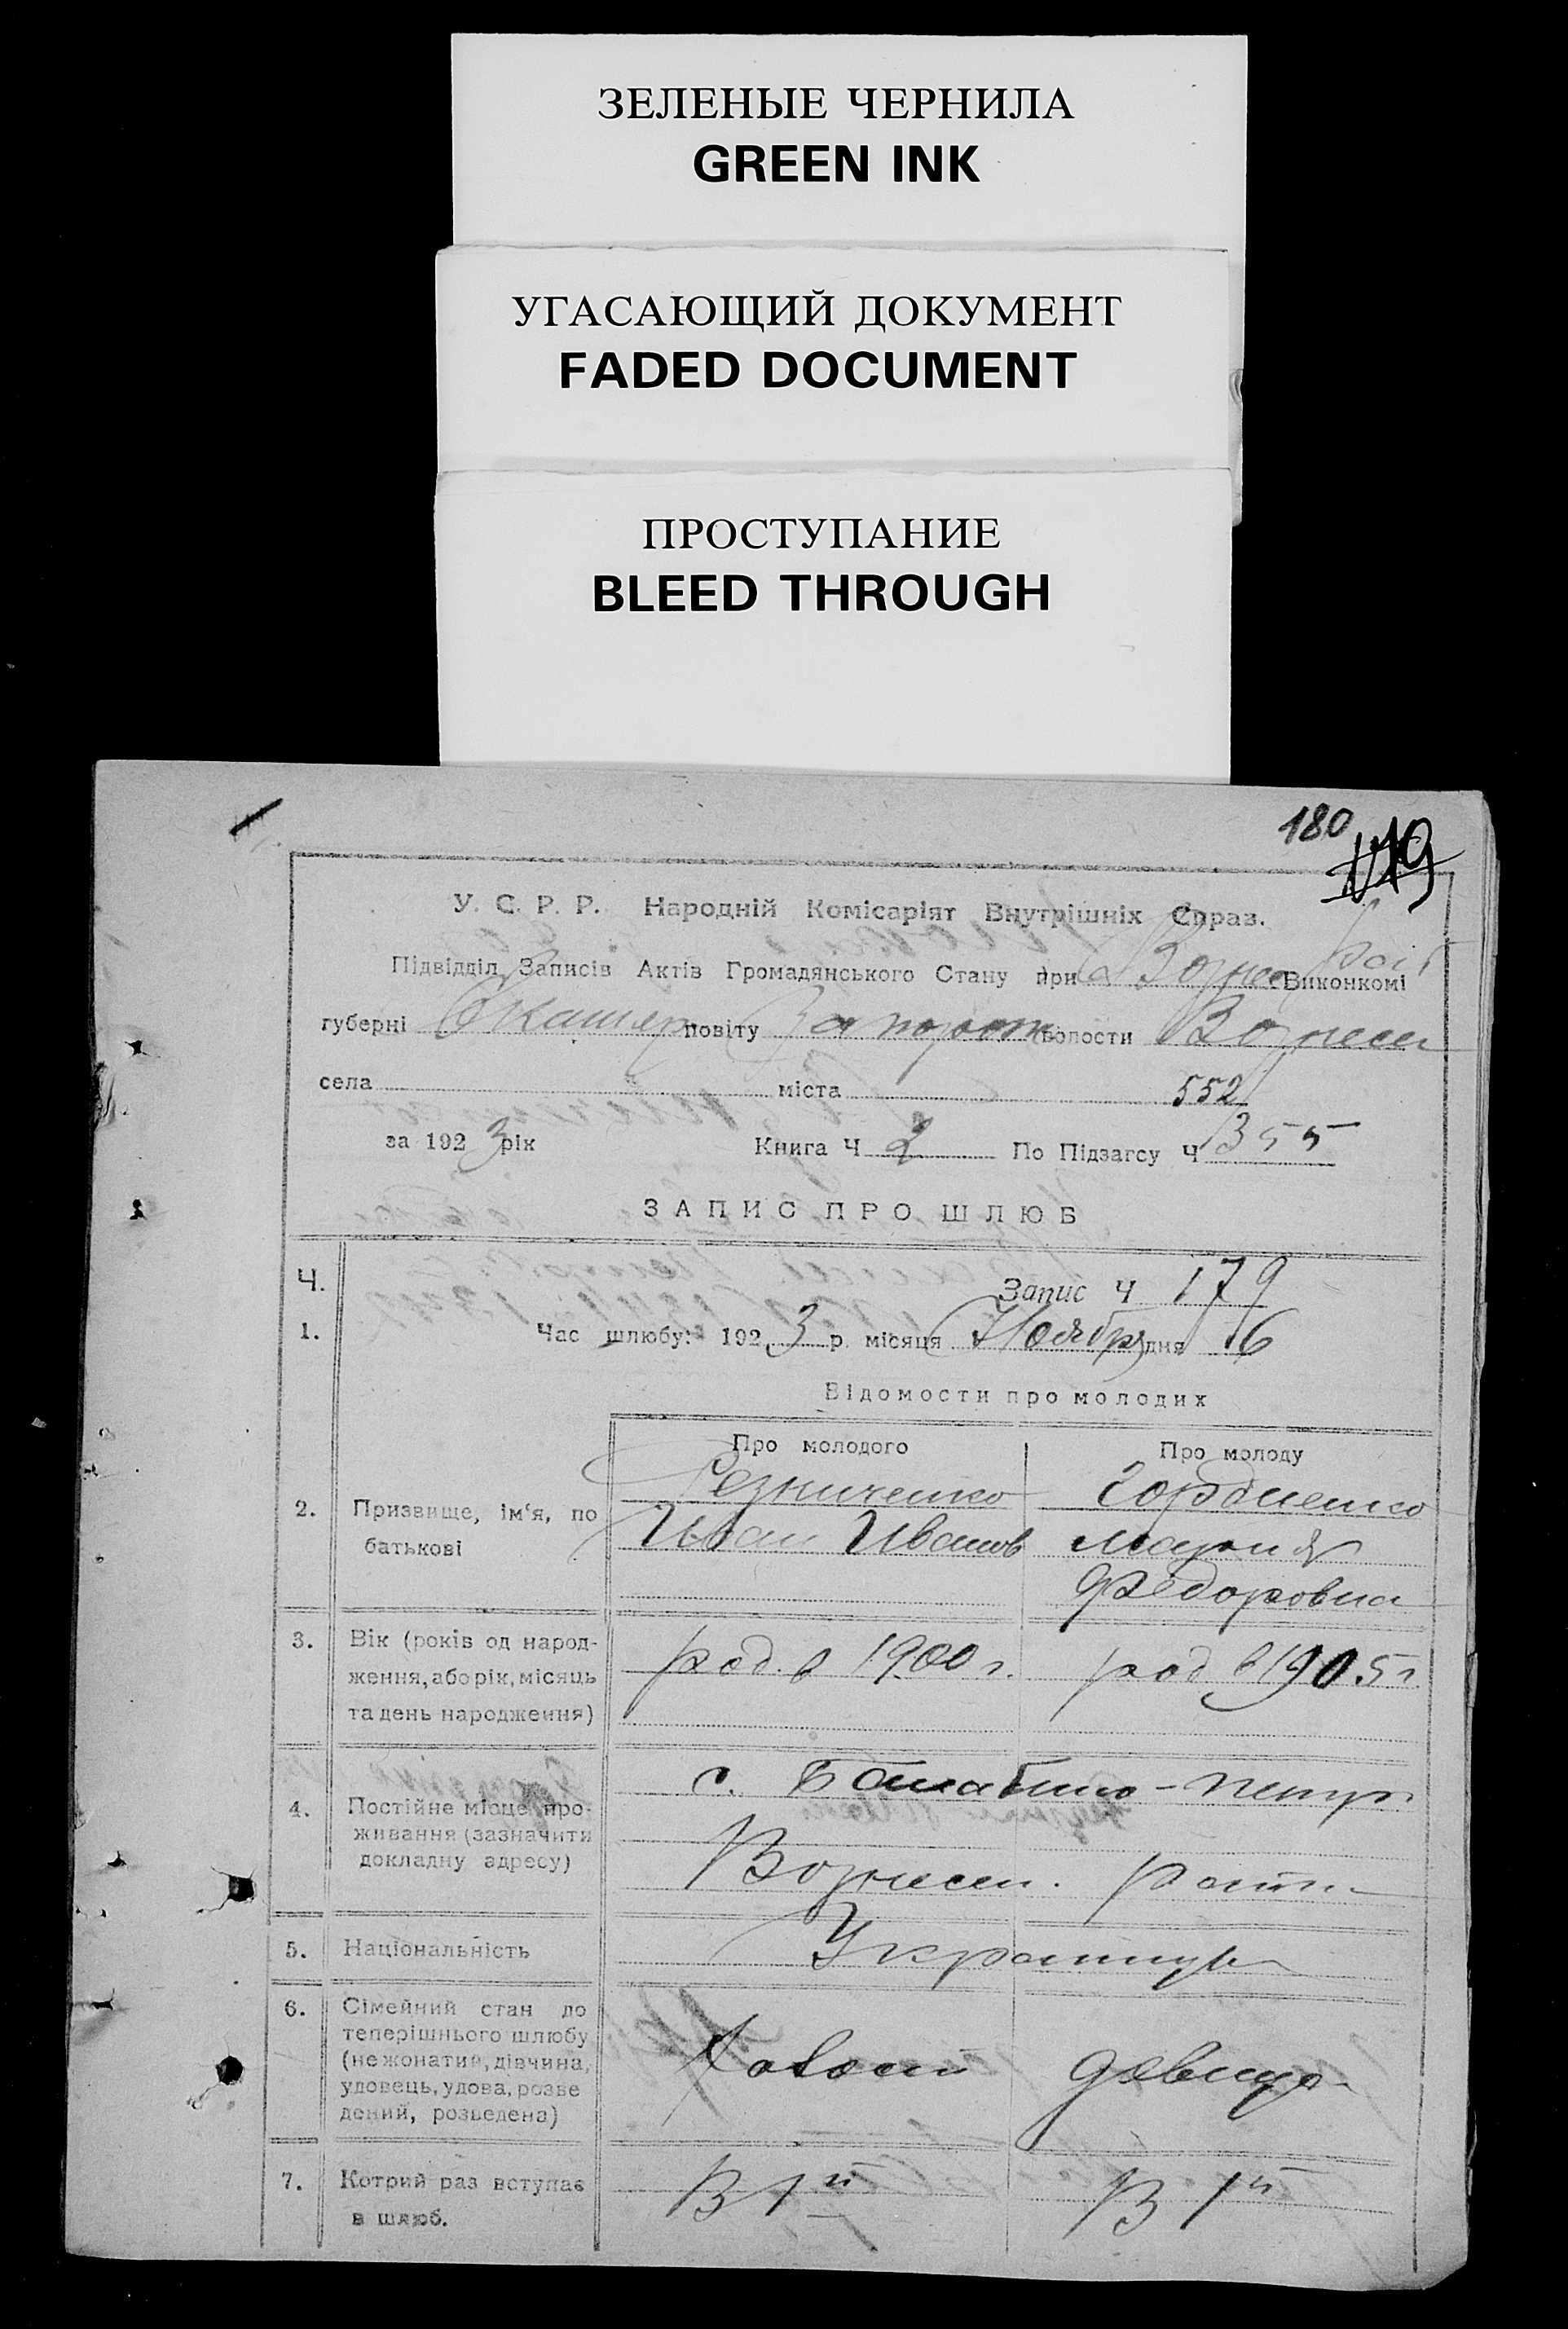 ЗЕЛЕНЫЕ ЧЕРНИЛА
GREEN INK
УГАСАЮЩИЙ ДОКУМЕНТ
FADED DOCUMENT
ПРОСТУПАНИЕ
BLEED THROUGH
180
179
У. С. Р. Р. Народній Комісаріят Внутрішніх Справ.
Підвідділ Записів Актів Громадянського Стану при Вознес Виконкомі
губерні Екатер повіту Запорож волости Вознесен
села міста 552
за 1923 рік Книга Ч 2 По Підзагсу Ч 355
ЗАПИС ПРО ШЛЮБ
Ч. Запис Ч 179
1. Час шлюбу: 1923 р. місяця Ноября дня 16
Відомости про молодих
Про молодого Про молоду
Резниченко Гордиенко
2. Призвище, ім'я, по Иван Иванов Мария
батькові Федоровна
3. Вік (років од народ- род. в 1900 г. род в 1905 г
ження, або рік, місяць
та день народження)
с. Балабино-Петр.
4. Постійне місце про-
живання (зазначити Вознесен.
докладну адресу)
5. Національність Украинцы
6. Сімейний стан до
теперішнього шлюбу
(нежонатий, дівчина, Холост девица
удовець, удова, розве
дений, розведена)
7. Котрий раз вступає В 1й В 1й
в шлюб.